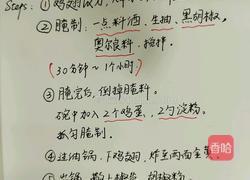 Steps: ① 鸡翅
② 腌制: 一点料酒、生抽、黑胡椒、
奥尔良料、搅拌.
(30分钟~1个小时)
③ 腌完后, 倒掉腌料.
碗中加入2个鸡蛋, 2勺淀粉.
抓匀腌制.
④ 过油锅, 下鸡翅, 炸至两面金黄
⑤ 出锅
香哈